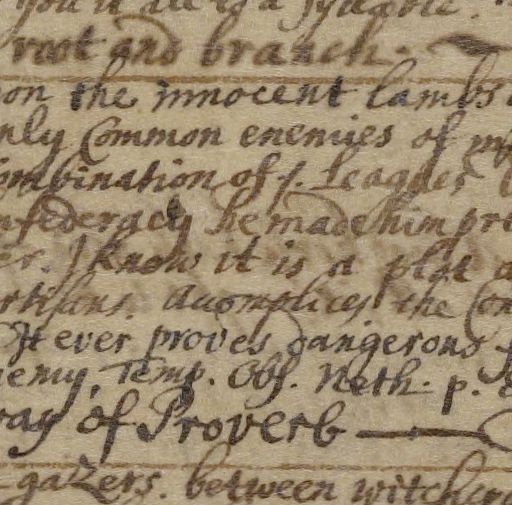 you it all is a syllable.
root and branch.
on the innocent lambs
nly Common enemies of
ombination of f. Leagues
nfederacy he made him pro
er. I know it is a plot
rtisans. Acomplices the Con
It ever proves dangerous
enemy, Temp. Obs. Neth. p.
ay of Proverb
gazers. between witchin